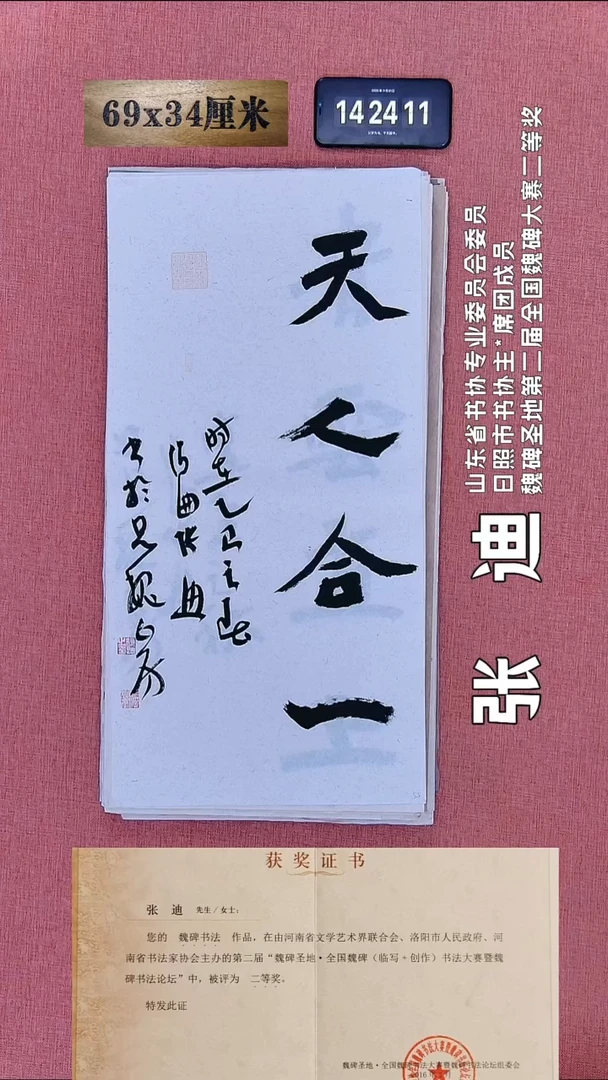 69x34厘米
14 24 11
天人合一
时在乙巳之春
张迪
山东省书协专业委员会委员
日照市书协主*席团成员
魏碑圣地第二届全国魏碑大赛二等奖
张 迪
获奖证书
张 迪 先生/女士:
您的 魏碑书法 作品，在由河南省文学艺术界联合会、洛阳市人民政府、河
南省书法家协会主办的第二届“魏碑圣地·全国魏碑（临写+创作）书法大赛暨魏
碑书法论坛”中，被评为 二等奖。
特发此证
魏碑圣地·全国魏碑书法大赛暨魏碑书法论坛组委会